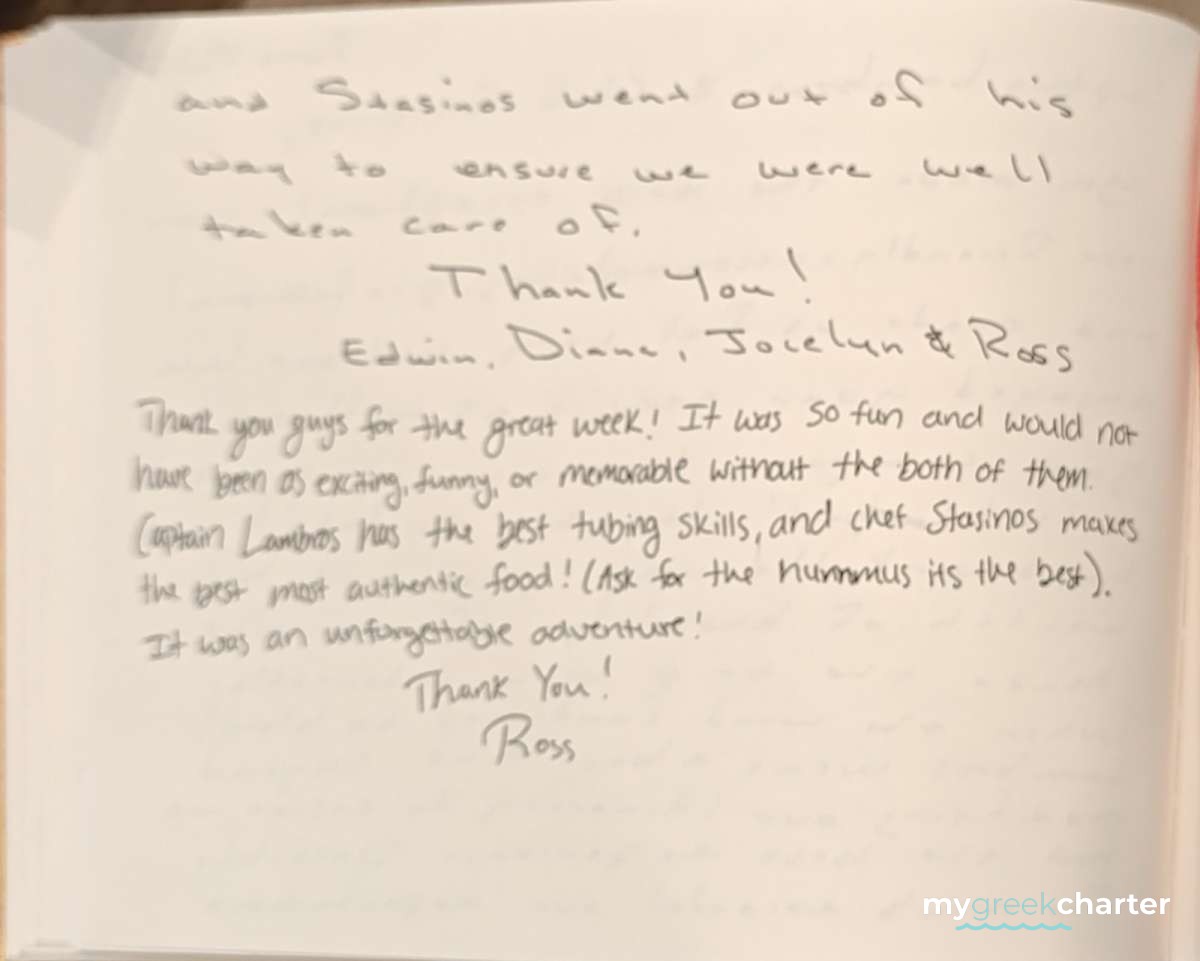 and Stasinos went out of his
way to ensure we were well
taken care of.
Thank You!
Edwin, Diane, Jocelyn & Ross
Thank you guys for the great week! It was so fun and would not
have been as exciting, funny, or memorable without the both of them.
Captain Lambros has the best tubing skills, and chef Stasinos makes
the best most authentic food! (Ask for the hummus its the best).
It was an unforgettable adventure!
Thank You!
Ross
mygreekcharter